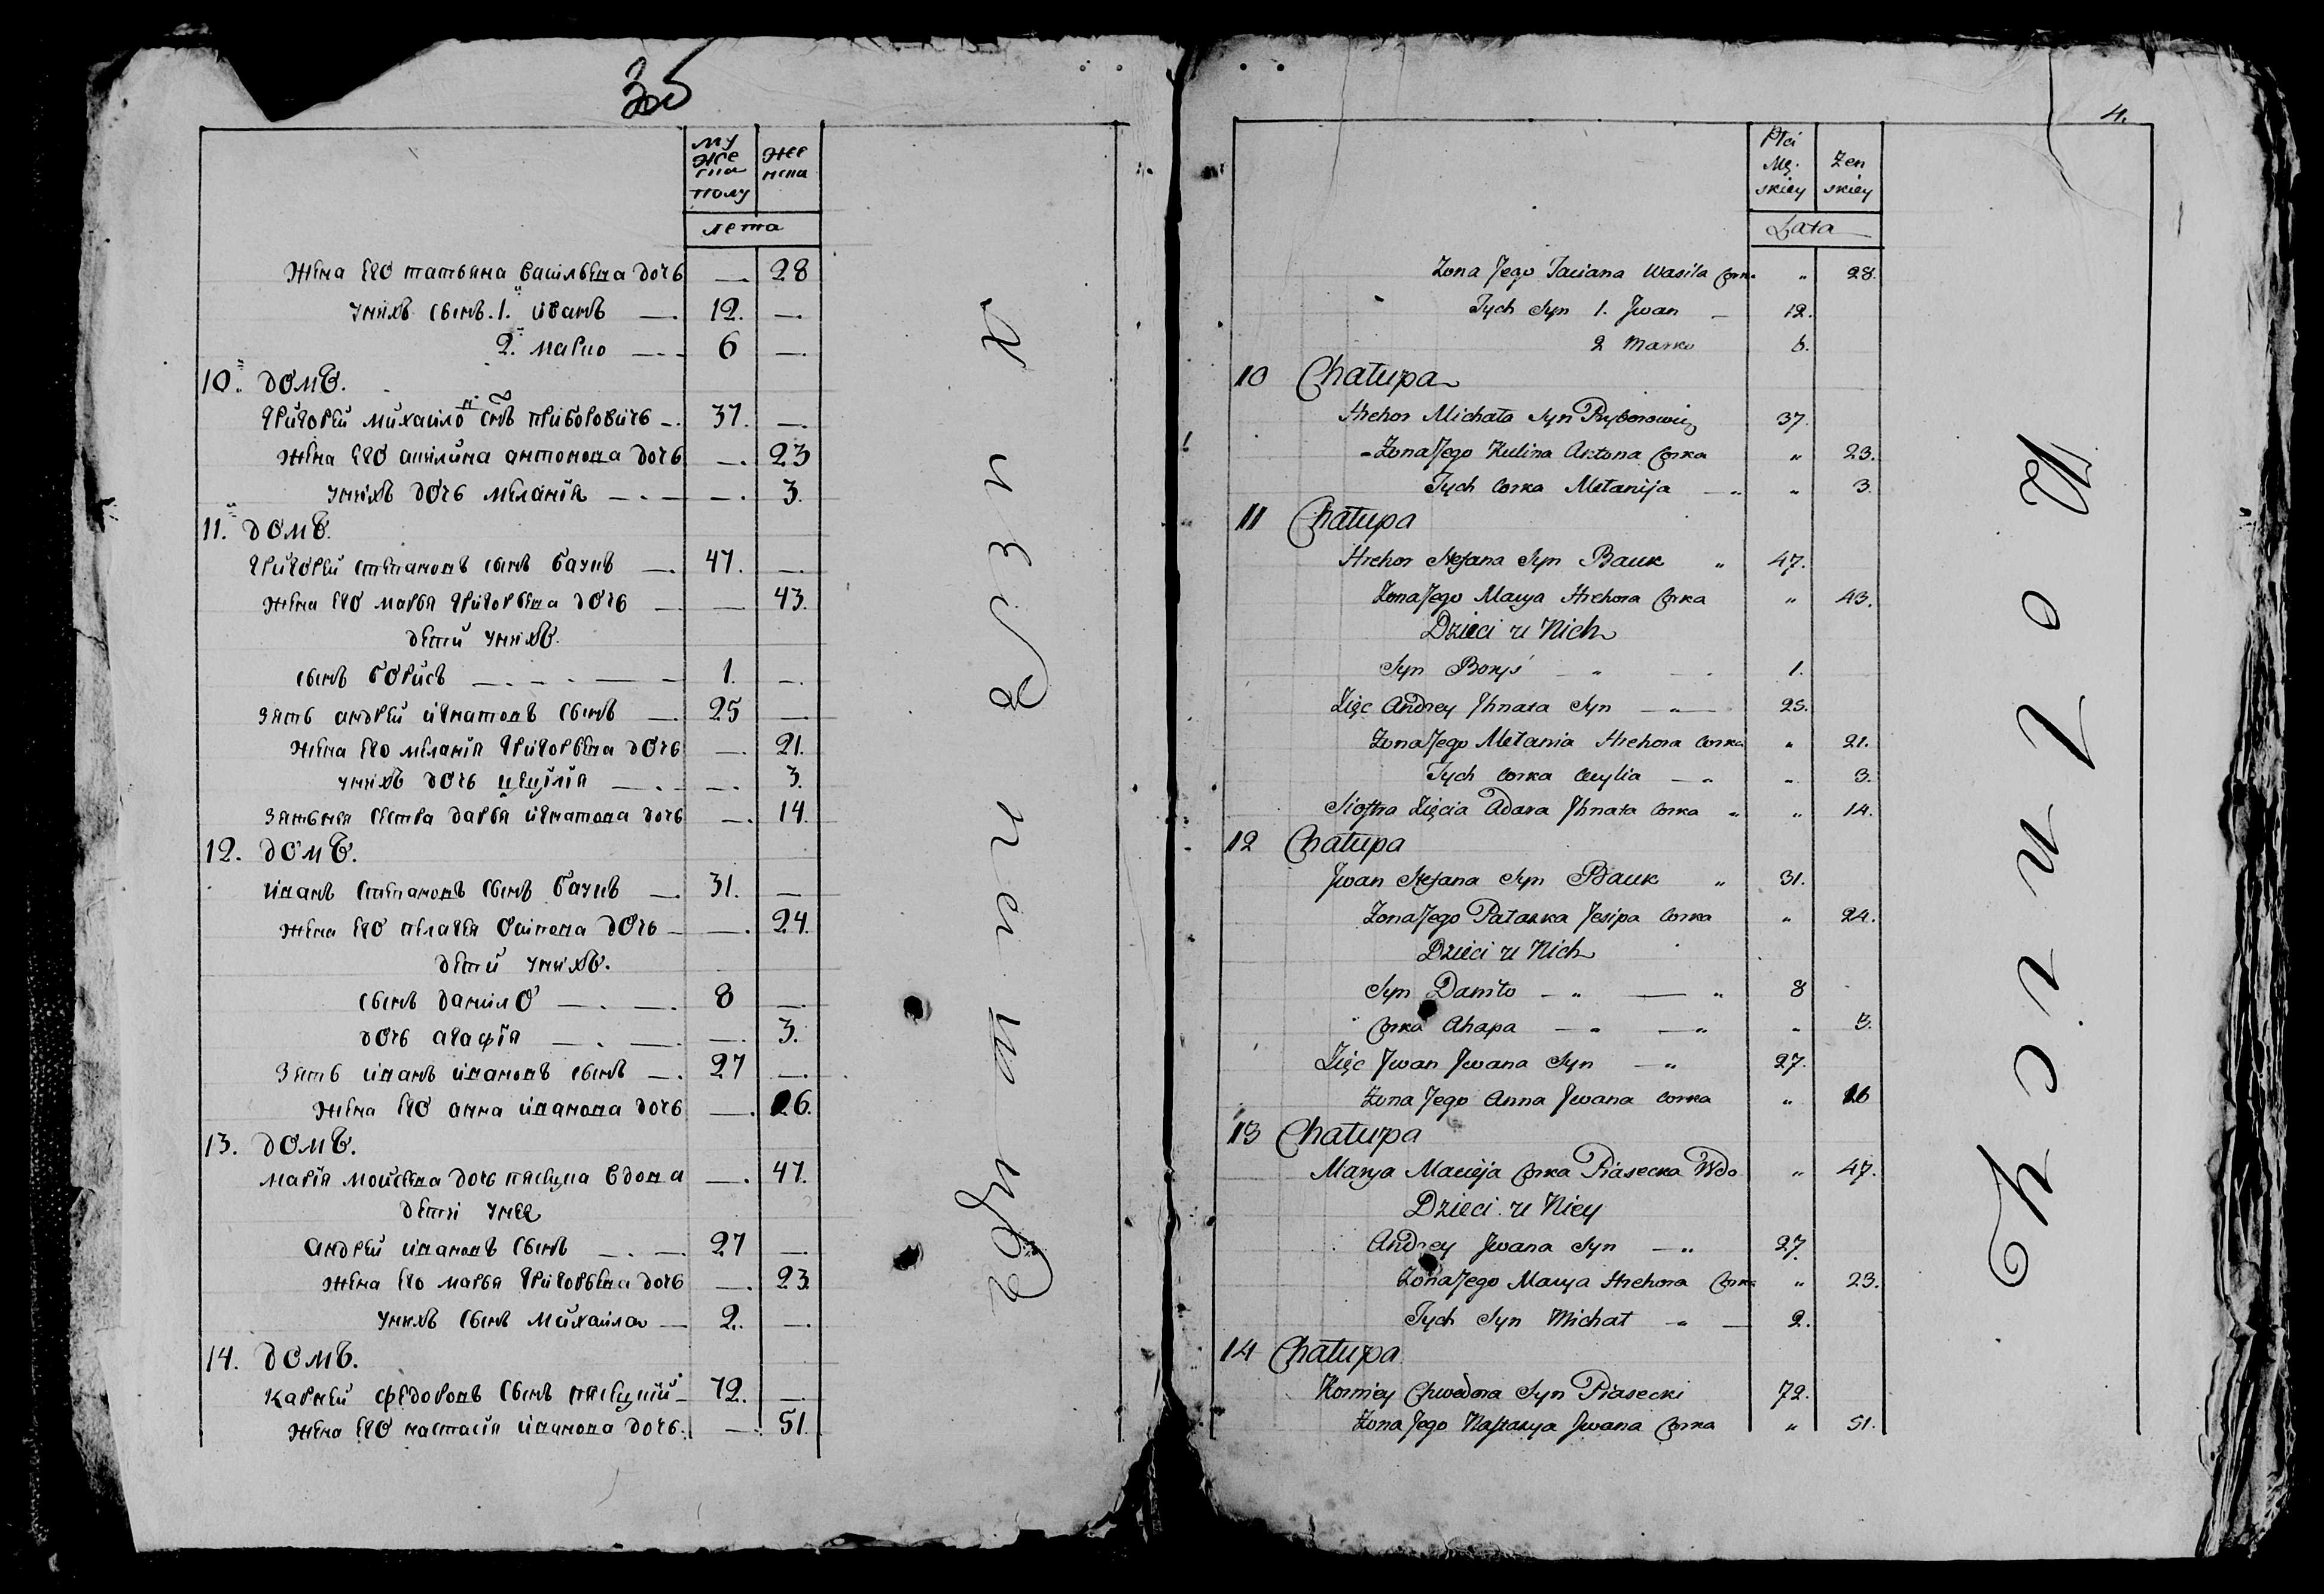 35
му же ска полу
жен ска
лета
жена его татьяна васильева дочь — 28
унихъ сынъ. 1. иванъ — 12. —
2. марко — 6 —
10. домъ.
григорей михайловъ снъприборовичь — 37. —
жена его акилина антонова дочь — 23
унихъ дочь меланія — 3.
11. домъ.
григорей степановъ сынъ баукъ — 47. —
жена его марья григорьева дочь — 43.
дети унихъ.
сынъ борисъ — 1. —
зять андрей игнатовъ сынъ — 25 —
жена его меланія григорьева дочь — 21.
унихъ дочь цецилія — 3.
сестра дарья игнатова дочь — 14.
12. домъ.
иванъ степановъ сынъ баукъ — 31. —
жена его пелагея осипова дочь — 24.
дети унихъ.
сынъ данило — 8 —
дочь агафія — 3.
зять иванъ ивановъ сынъ — 27 —
жена его анна иванова дочь — 26.
13. домъ.
марія моисеева дочь пясецка вдова — 47.
дети унее
андрей ивановъ сынъ — 27 —
жена его марья григорьева дочь — 23
унихъ сынъ михайла — 2. —
14. домъ.
карней федоровъ сынъ пясецкий — 72. —
жена его настасія иванова дочь. — 51.
4.
Płci Mę. skiey
Żen skiey
Lata
Żona Jego Taciana Wasila Corka " 28.
Tych Syn 1. Jwan — 12.
2 Marko 6.
10 Chałupa
Hrehor Michała Syn Pryborowicz 37.
Żona Jego Kulina Antona Corka " 23.
Tych Corka Mełanija — " " 3.
11 Chałupa
Hrehor Stefana Syn Bauk " 47.
Żona Jego Marya Hrehora Corka " 43.
Dzieci u Nich
Syn Boryś — " 1.
Zięc Andrey Jhnata Syn — " — 25.
Żona Jego Mełania Hrehora Corka " 21.
Tych Corka Cecylia — " " 3.
Siostra Zięcia Adara Jhnata Corka " " 14.
12 Chałupa
Jwan Stefana Syn Bauk " 31.
Żona Jego Pałaska Jesipa Corka " 24.
Dzieci u Nich
Syn Daniło — " — " 8
Corka Ahapa — " — " " 3.
Zięc Jwan Jwana Syn — " 27.
Żona Jego Anna Jwana Corka " 26
13 Chałupa
Marya Macieja Corka Piasecka Wdo " 47.
Dzieci u Niey
Andrey Jwana Syn — " 27.
Żona Jego Marya Hrehora Corka " 23.
Tych Syn Michał — " — 2.
14 Chałupa
Korniey Chwedora Syn Piasecki 72.
Żona Jego Nastasya Jwana Corka " 51.